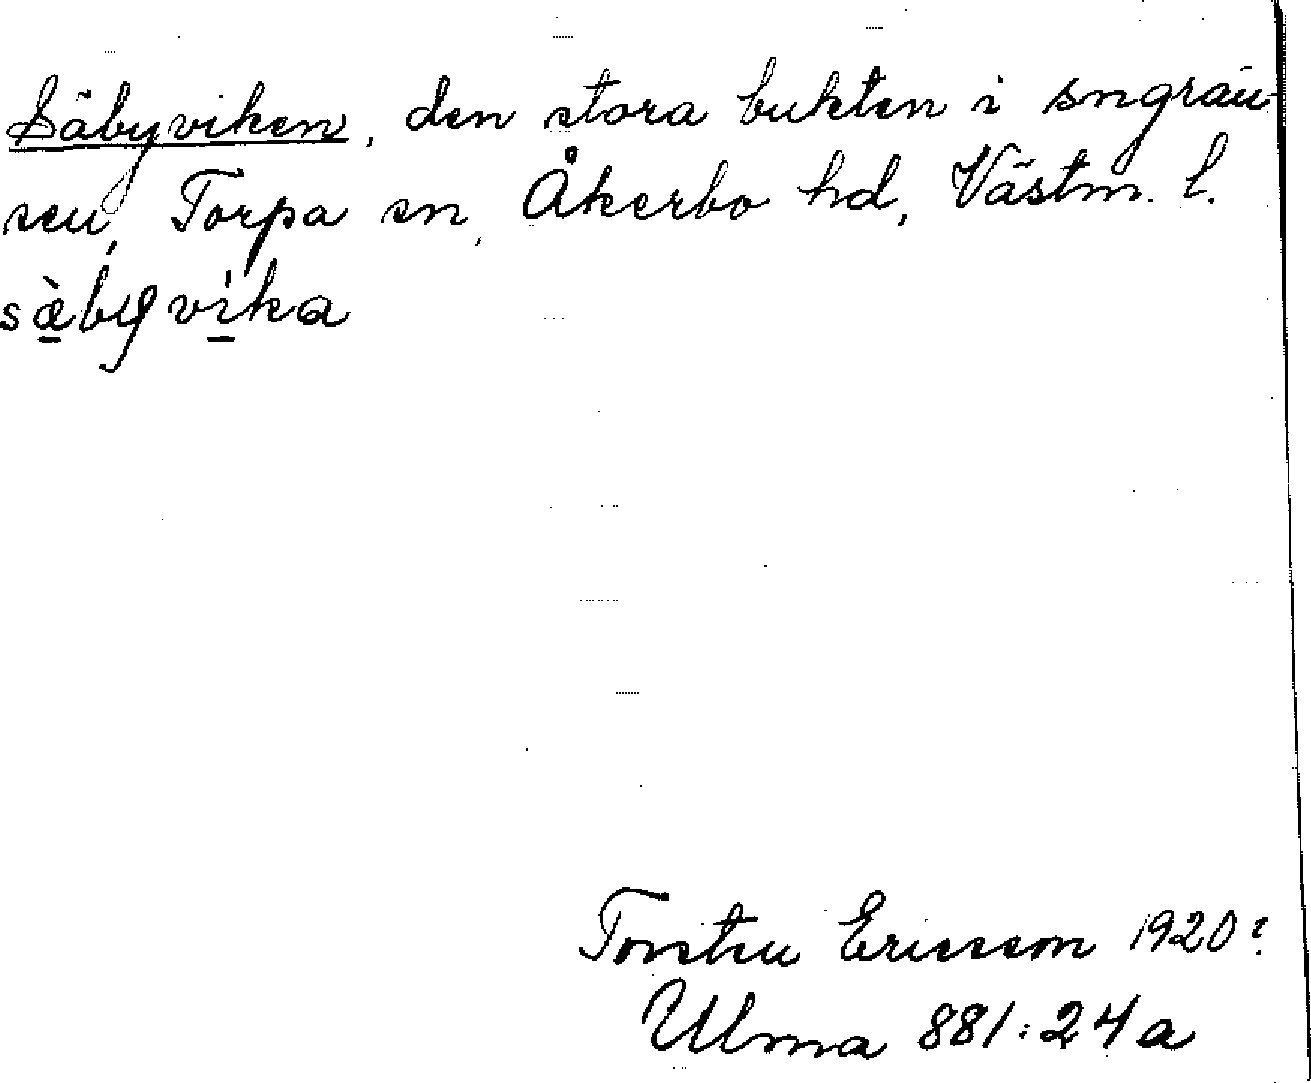 Säbyviken, den stora bukten i sngrän-
sen, Torpa sn, Åkerbo hd, Västm. l.
sæ̀byvìka
Torsten Ericsson 1920?
Ulma 881:24a